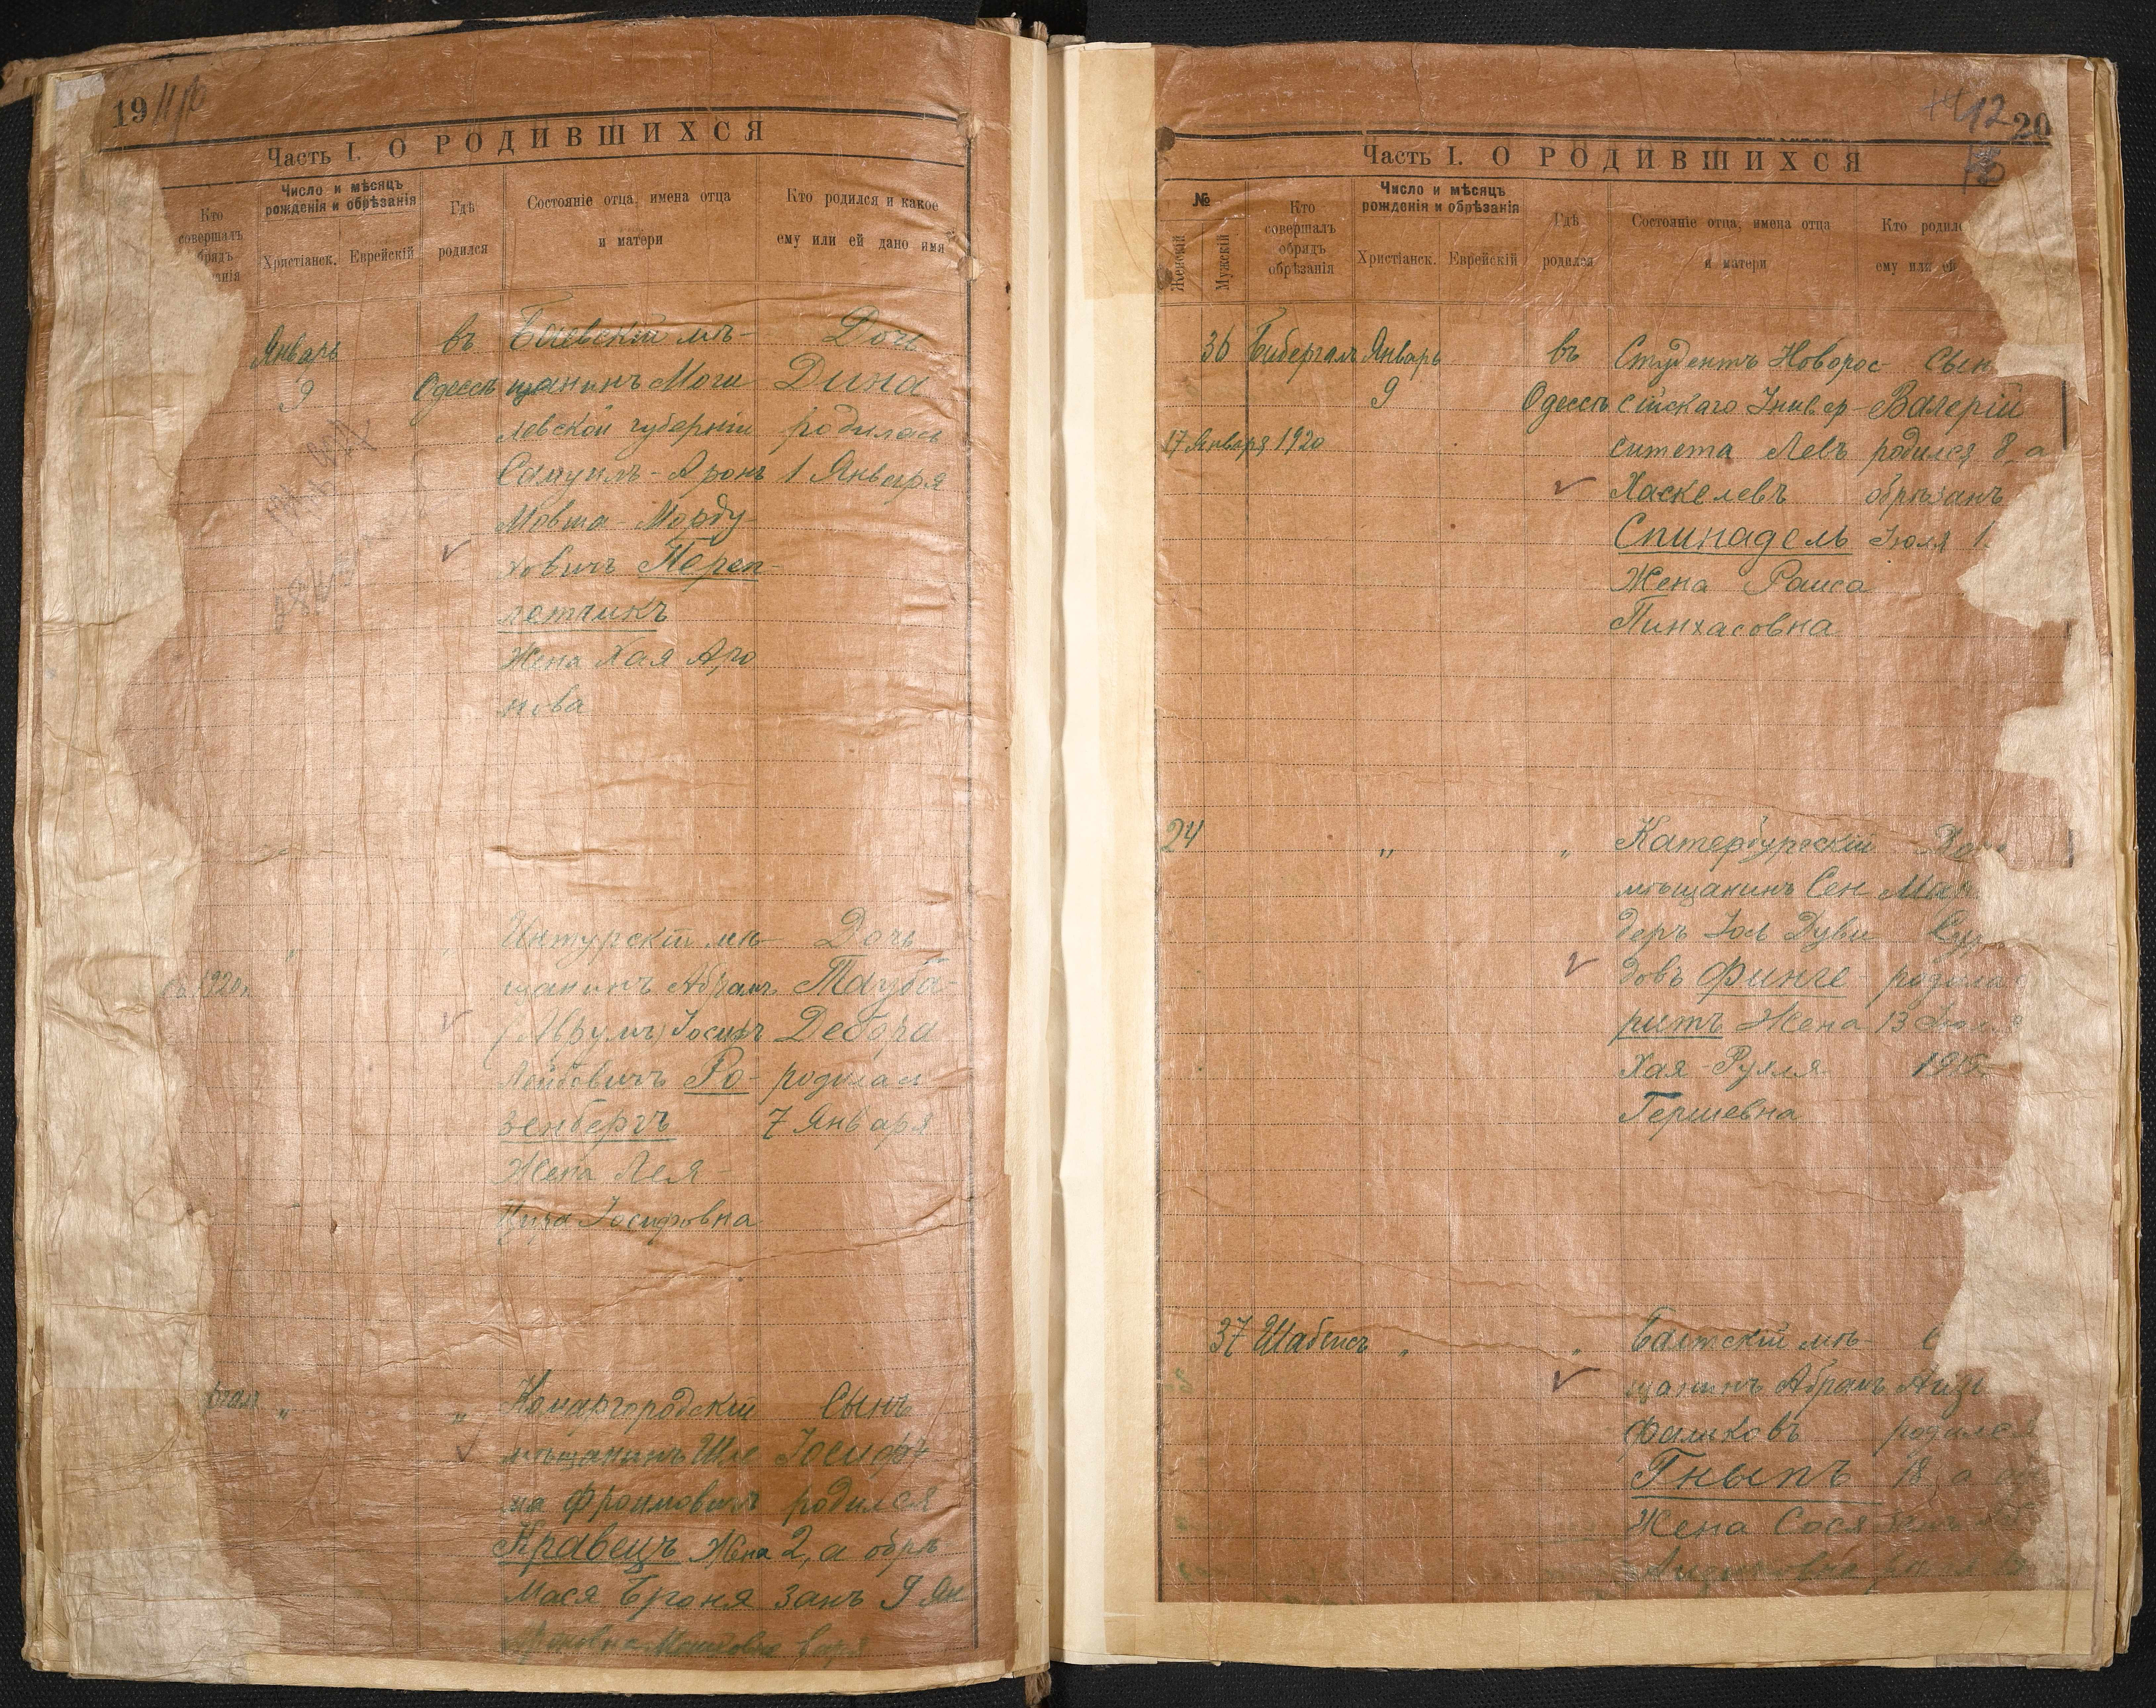 19
Часть I. О РОДИВШИХСЯ
Кто
совершалъ
Число и мѣсяцъ
рожденія и обрѣзанія
Христіанск. Еврейскій
Гдѣ
родился
Состояніе отца, имена отца
и матери
Кто родился и какое
ему или ей дано имя
Январь
9
въ
Одессѣ
Баевскій мѣ-
щанинъ Моги
левской губерніи
Самуилъ-Аронъ
Мовша-Морду-
ховичъ Переп-
летчикъ
Жена Хая Аро
нова
Дочь
Дина
родилась
1 Января
1920 г.
" "
мѣ-
щанинъ Абрамъ
(Аврумъ) Іосифъ
Лейбовичъ Ро-
зенбергъ
Жена Лея-
Іосифовна
Дочь
Тауба-
Дебора
родилась
7 Января
" "
Комаргородскій
мѣщанинъ Шле
ма Фроимовичъ
Кравецъ Жена
Мася Броня
Сынъ
Іосифъ
родился
2, а обрѣ
занъ 9 Ян
варя
20
12
Часть I. О РОДИВШИХСЯ
№
Женскій
Мужскій
Кто
совершалъ
обрядъ
обрѣзанія
Число и мѣсяцъ
рожденія и обрѣзанія
Христіанск. Еврейскій
Гдѣ
родился
Состояніе отца, имена отца
и матери
Кто родил
ему или ей
36 Бибергалъ Январь
9
17 Января 1920
въ
Одессѣ
Студентъ Новорос-
сійскаго Универ-
ситета Левъ
Хаскелевъ
Спинадель
Жена Раиса
Пинхасовна
Сын
Валерій
родился 8, а
обрѣзанъ
Іюля 1
24 " "
Катербургскій
мѣщанинъ Сен
деръ Іось Дуви
довъ Финге-
ритъ Жена
Хая-Рухля
Гершевна
родила
13
37 Шабсисъ " "
Балтскій мѣ-
щанинъ Абрамъ
Фалковъ
Гныпъ
Жена Сося
родился
18, а